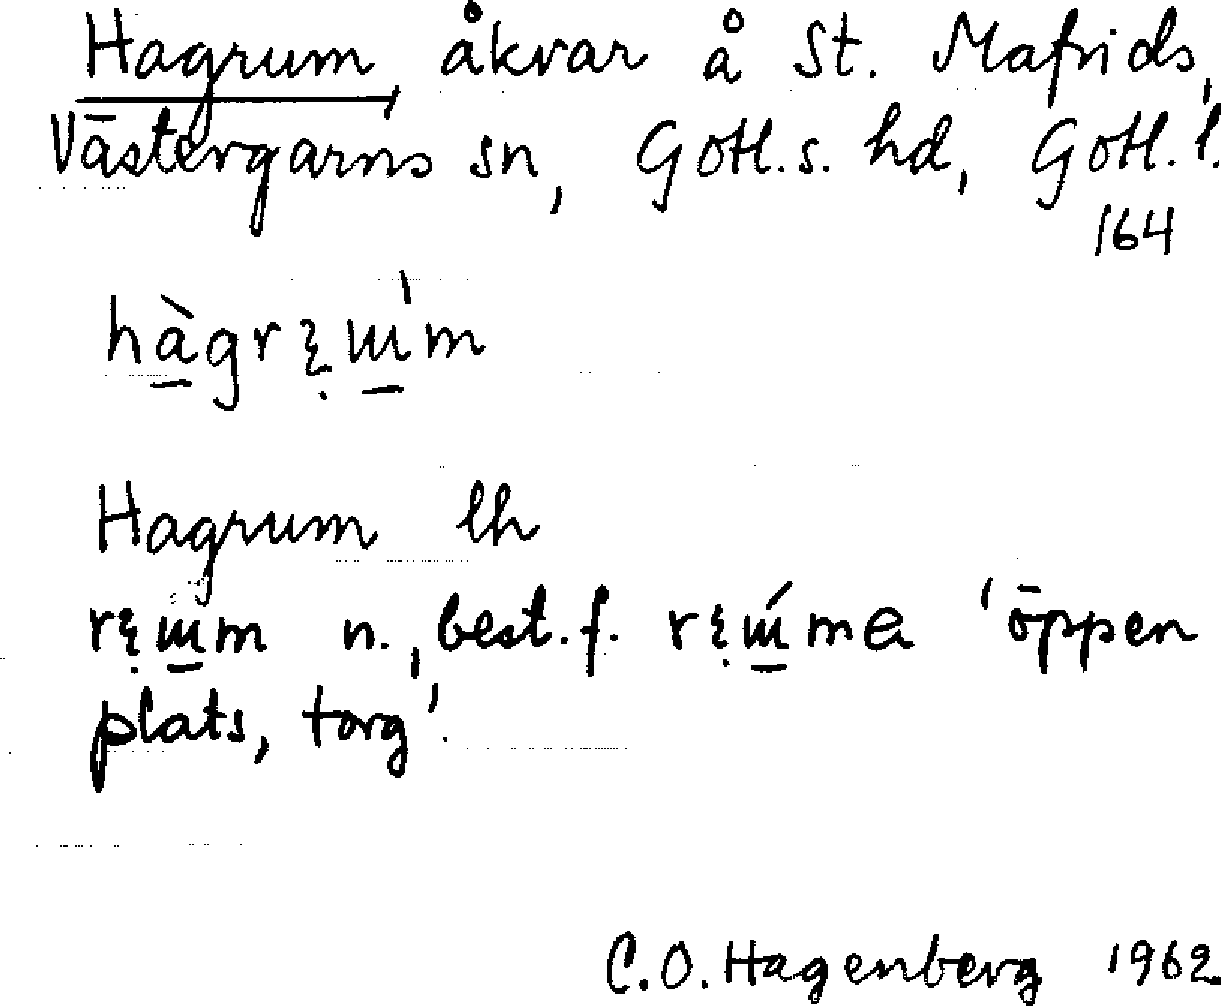 Hagrum, åkrar å St. Mafrids,
Västergarns sn, Gotl. s. hd, Gotl. l.
164
Hagrum lh
n., best. f. 'öppen
plats, torg'.
C. O. Hagenberg 1962